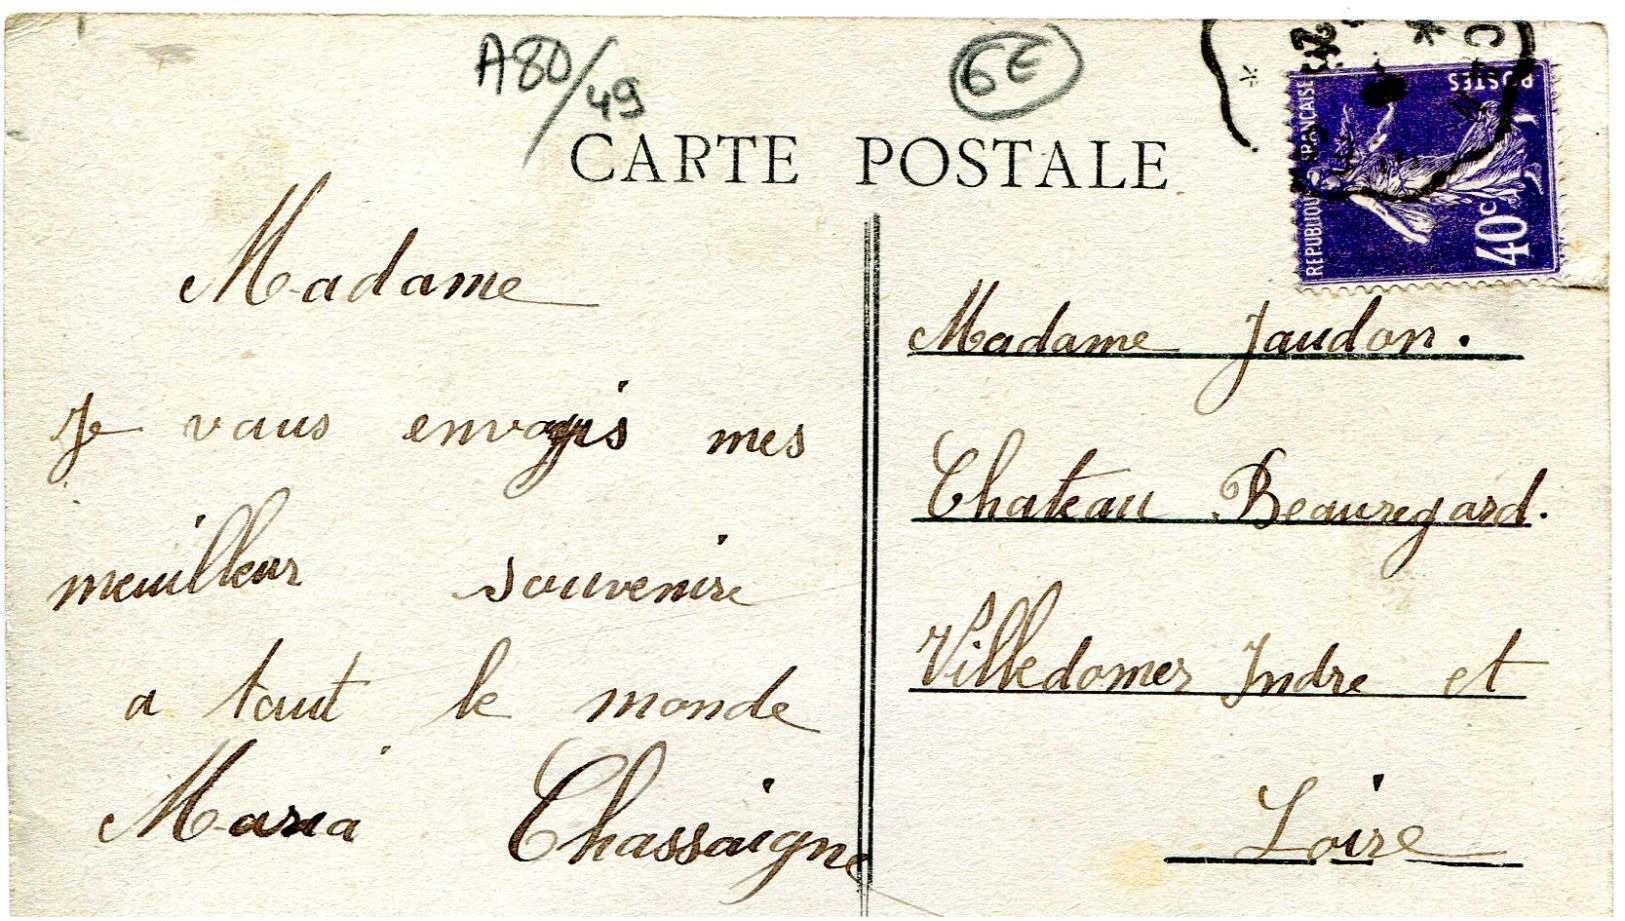 A80/49
6E
CARTE POSTALE
REPUBLIQUE FRANÇAISE
POSTES
40c
Madame
Je vous envoyis mes
meuilleur souvenire
a tout le monde
Maria Chassaigne
Madame Jaudon.
Chateau Beauregard.
Villedomer Indre et
Loire